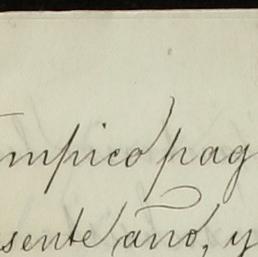 mpico pag
sente año, y